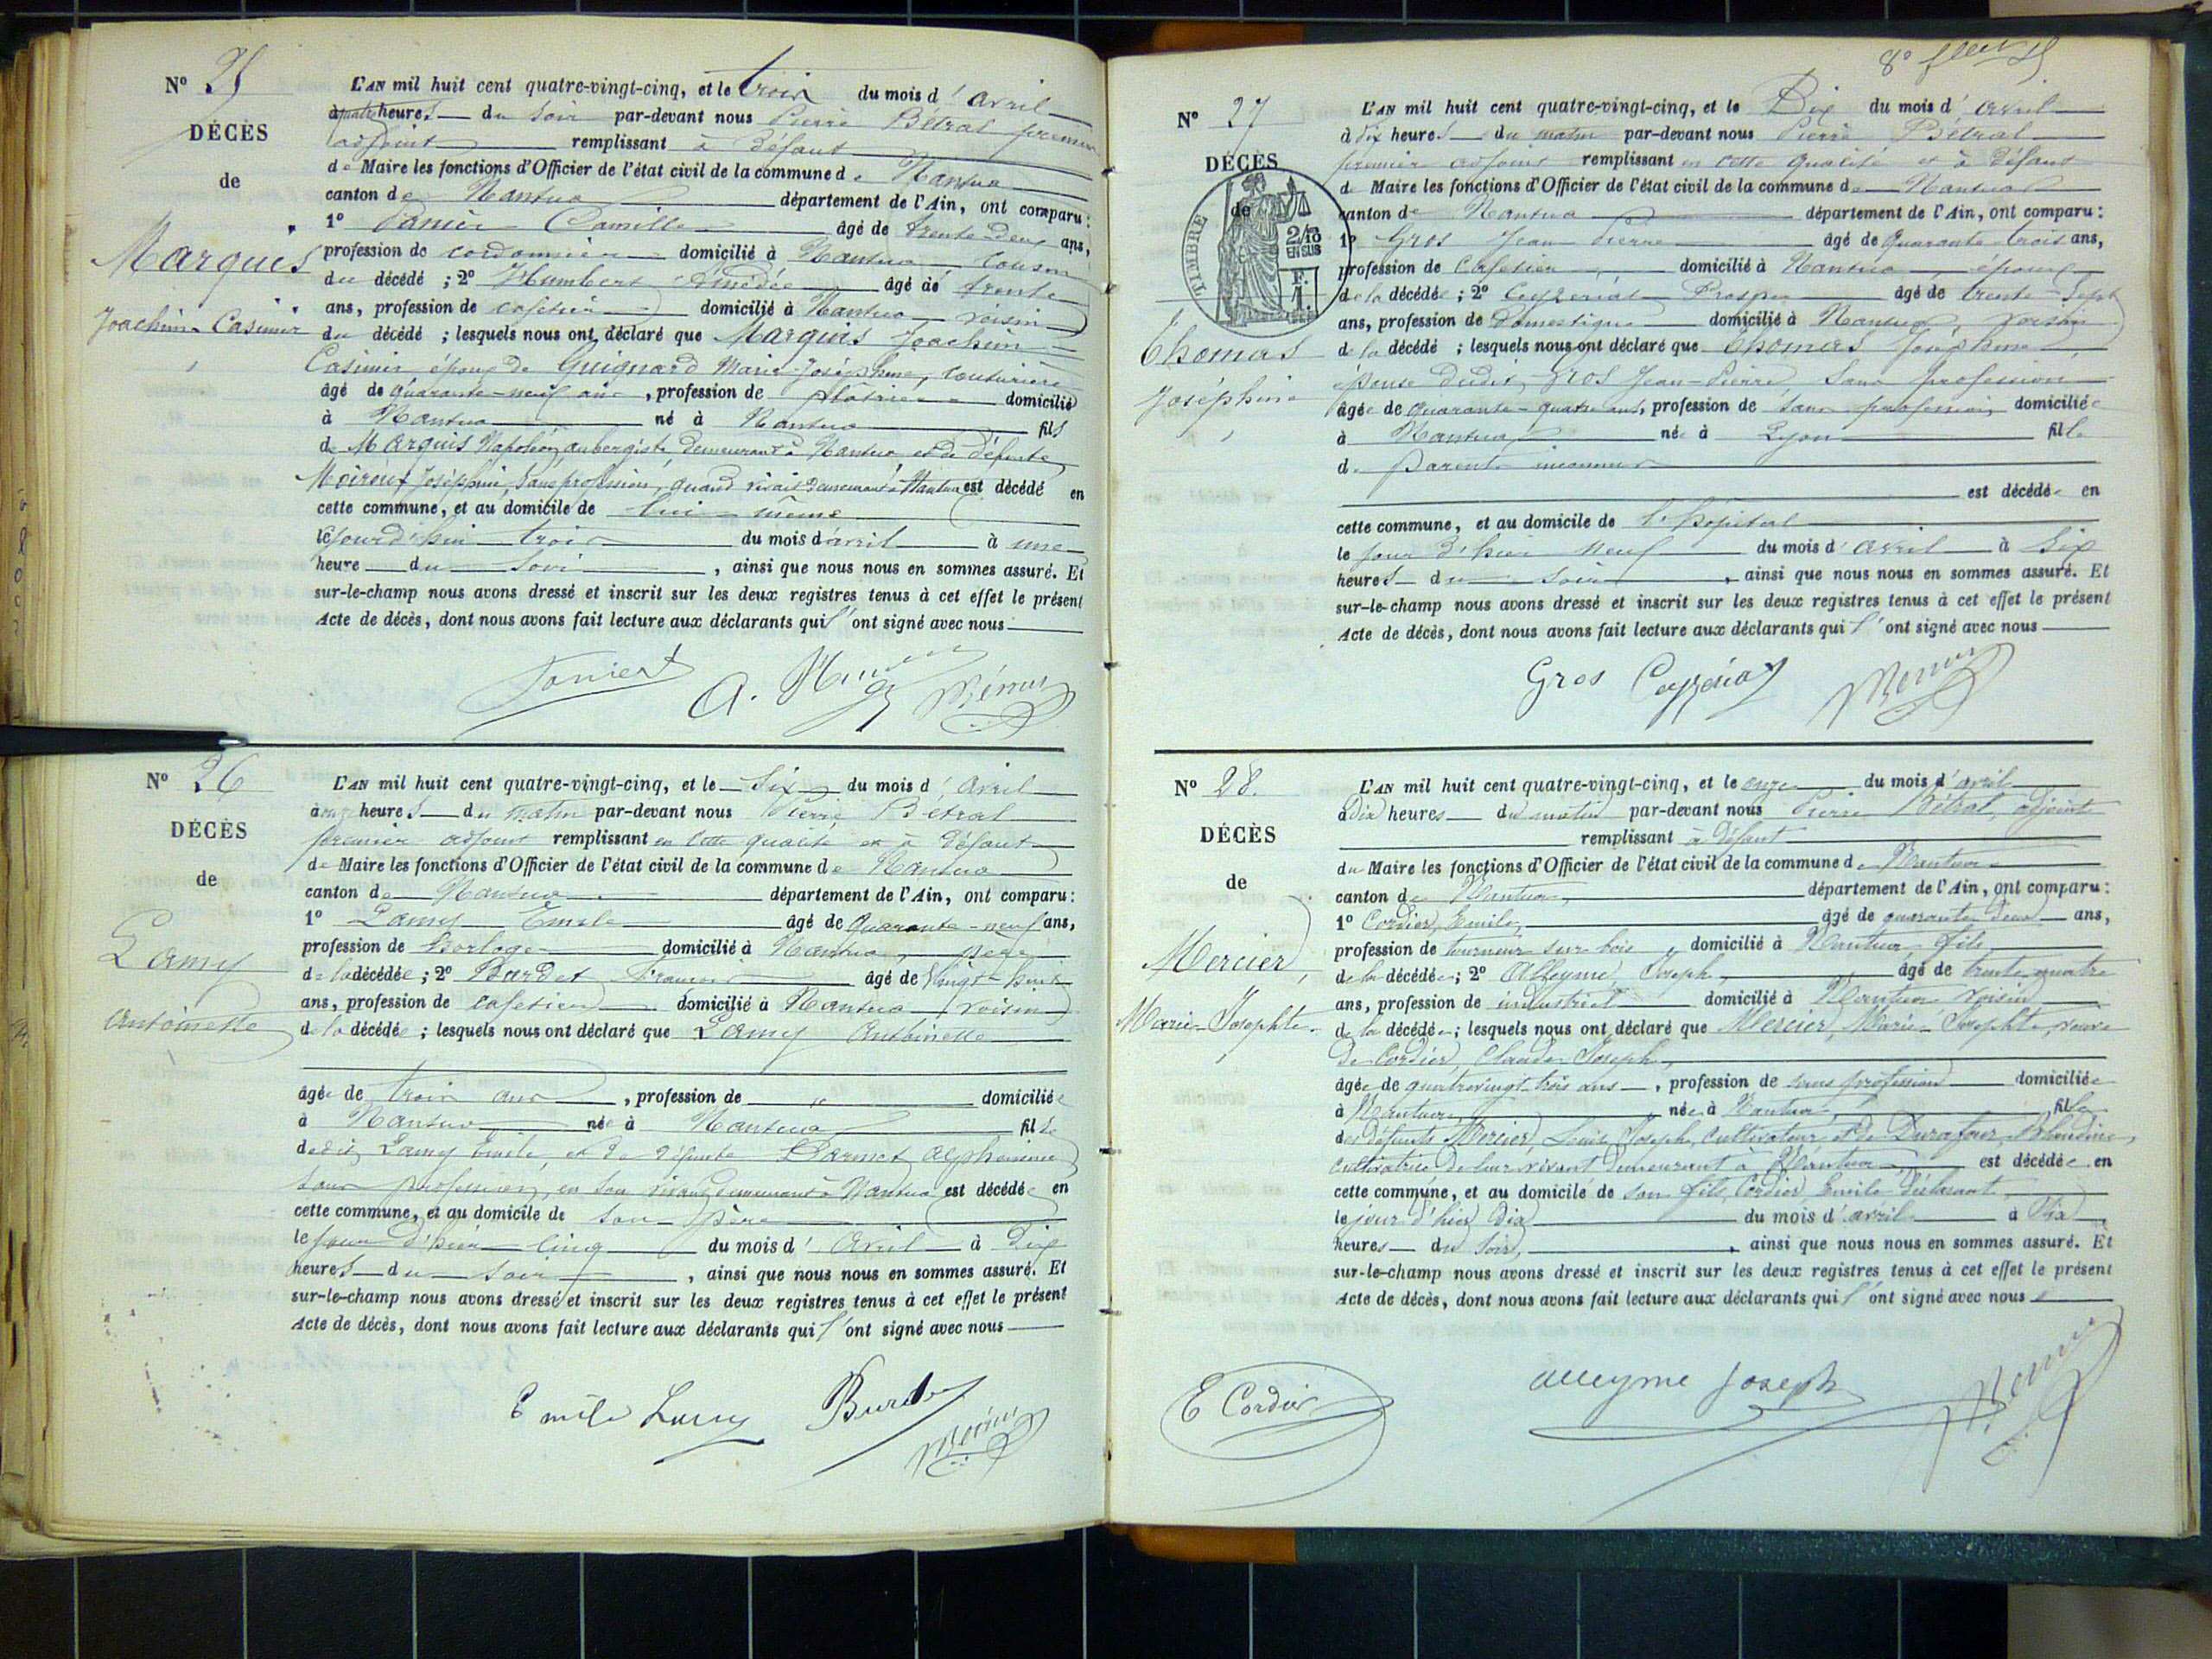 N° 25
DÉCÈS
de
Marquis
Joachim Casimir
L'AN mil huit cent quatre-vingt-cinq, et le trois du mois d'avril
à quatre heures du soir par-devant nous Pierre Bétral premier
adjoint remplissant à défaut
de Maire les fonctions d'Officier de l'état civil de la commune de Nantua
canton de Nantua département de l'Ain, ont comparu:
1° Camille âgé de trente-deux ans,
profession de cordonnier domicilié à Nantua cousin
du décédé ; 2° Humbert Amédée âgé de trente
ans, profession de cafetier domicilié à Nantua voisin
du décédé ; lesquels nous ont déclaré que Marquis Joachim
Casimir époux de Guignard Marie Joséphine, couturière
âgé de quarante-neuf ans, profession de plâtrier domicilié
à Nantua né à Nantua fils
de Marquis Napoléon, aubergiste, demeurant à Nantua et de défunte
Moiroux Joséphine, sans profession, quand vivait demeurant à Nantua est décédé en
cette commune, et au domicile de lui-même
le jourd'hui trois du mois d'avril à une
heure du soir, ainsi que nous nous en sommes assuré. Et
sur-le-champ nous avons dressé et inscrit sur les deux registres tenus à cet effet le présent
Acte de décès, dont nous avons fait lecture aux déclarants qui l'ont signé avec nous
N° 26
DÉCÈS
de
Lamy
Antoinette
L'AN mil huit cent quatre-vingt-cinq, et le six du mois d'avril
à onze heures du matin par-devant nous Pierre Bétral
premier adjoint remplissant en cette qualité et à défaut
de Maire les fonctions d'Officier de l'état civil de la commune de Nantua
canton de Nantua département de l'Ain, ont comparu:
1° Lamy Emile âgé de quarante-neuf ans,
profession de horloger domicilié à Nantua, père
de la décédée ; 2° Burdet François âgé de vingt-huit
ans, profession de cafetier domicilié à Nantua voisin
de la décédée ; lesquels nous ont déclaré que Lamy Antoinette
âgée de trois ans, profession de " domiciliée
à Nantua née à Nantua fille
dudit Lamy Emile, et de défunte Alphonsine
sans profession, en son vivant demeurant à Nantua est décédée en
cette commune, et au domicile de son père
le jour d'hier cinq du mois d'Avril à dix
heures du soir, ainsi que nous nous en sommes assuré. Et
sur-le-champ nous avons dressé et inscrit sur les deux registres tenus à cet effet le présent
Acte de décès, dont nous avons fait lecture aux déclarants qui l'ont signé avec nous
Emile Lamy Burdet
8e
N° 27
DÉCÈS
de
TIMBRE
2/10
EN SUS
F.
1.
Thomas
Joséphine
L'AN mil huit cent quatre-vingt-cinq, et le Dix du mois d'avril
à dix heures du matin par-devant nous Pierre Bétral
premier adjoint remplissant en cette qualité et à défaut
de Maire les fonctions d'Officier de l'état civil de la commune de Nantua
canton de Nantua département de l'Ain, ont comparu:
1° Gros Jean Pierre âgé de quarante trois ans,
profession de cafetier domicilié à Nantua, époux
de la décédée ; 2° Ceyzériat Prosper âgé de trente-sept
ans, profession de domestique domicilié à Nantua, voisin
de la décédé ; lesquels nous ont déclaré que Thomas Joséphine
épouse dudit Gros Jean-Pierre sans profession
âgée de quarante-quatre ans, profession de sans profession domiciliée
à Nantua née à Lyon fille
de parents inconnus
est décédée en
cette commune, et au domicile de l'hôpital
le jour d'hier neuf du mois d'avril à six
heures du soir, ainsi que nous nous en sommes assuré. Et
sur-le-champ nous avons dressé et inscrit sur les deux registres tenus à cet effet le présent
Acte de décès, dont nous avons fait lecture aux déclarants qui l'ont signé avec nous
Gros Ceyzériat
N° 28.
DÉCÈS
de
Mercier,
Marie-Josephte.
L'AN mil huit cent quatre-vingt-cinq, et le onze du mois d'avril
à dix heures du matin par-devant nous Pierre Bétral, adjoint
remplissant à défaut
du Maire les fonctions d'Officier de l'état civil de la commune de Nantua
canton de Nantua, département de l'Ain, ont comparu:
1° Cordier, Emile, âgé de quarante deux ans,
profession de tourneur sur bois, domicilié à Nantua fils
de la décédée ; 2° Alleyme Joseph, âgé de trente quatre
ans, profession de industriel domicilié à Nantua voisin
de la décédée ; lesquels nous ont déclaré que Mercier, Marie-Josephte, veuve
de Cordier, Claude Joseph,
âgée de quatrevingt-trois ans, profession de sans profession domiciliée
à Nantua, née à Nantua, fille
des défunts Mercier, Louis Joseph, cultivateur et de Durafour Claudine,
cultivatrice de leur vivant demeurant à Nantua, est décédée en
cette commune, et au domicile de son fils, Cordier Emile déclarant,
le jour d'hier dix du mois d'avril à dix
heures du soir, ainsi que nous nous en sommes assuré. Et
sur-le-champ nous avons dressé et inscrit sur les deux registres tenus à cet effet le présent
Acte de décès, dont nous avons fait lecture aux déclarants qui l'ont signé avec nous
E Cordier alleyme Joseph